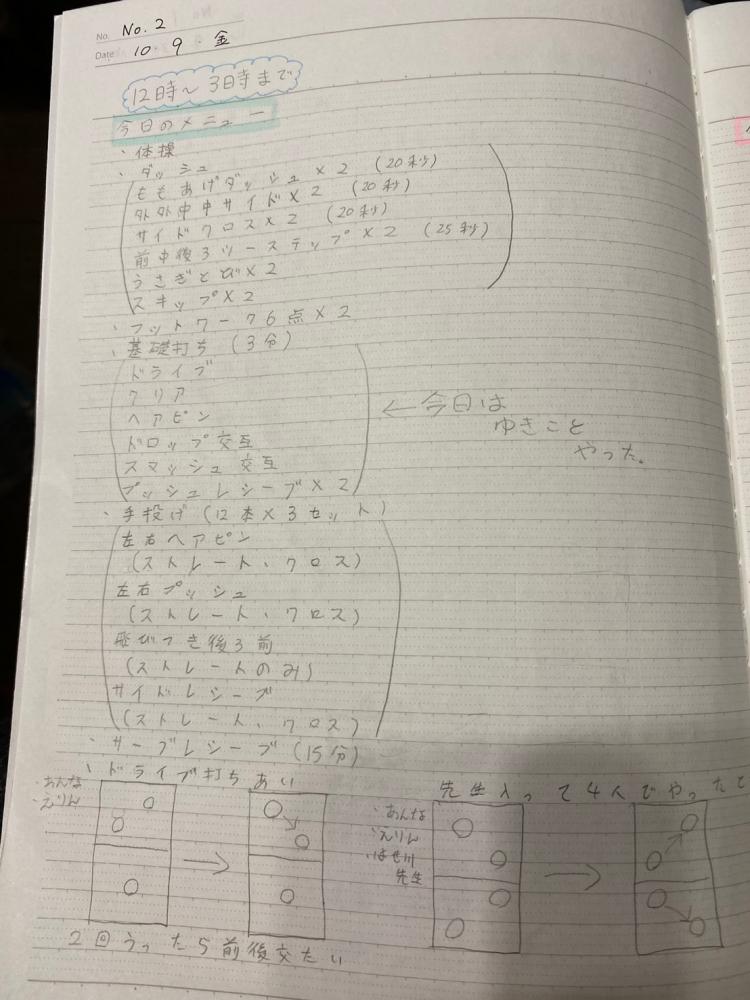 No. No. 2
Date 10・9・金
12時〜3時まで
今日のメニュー
・体操
・ダッシュ
ももあげダッシュ×2 (20秒)
外外中中サイド×2 (20秒)
サイドクロス×2 (20秒)
前中後ろツーステップ×2 (25秒)
うさぎとび×2
スキップ×2
・フットワーク6点×2
・基礎打ち (3分)
ドライブ
クリア
ヘアピン
ドロップ交互
スマッシュ交互
プッシュレシーブ×2
←今日は
ゆきこと
やった。
・手投げ (12本×3セット)
左右ヘアピン
(ストレート、クロス)
左右プッシュ
(ストレート、クロス)
飛びつき後ろ前
(ストレートのみ)
サイドレシーブ
(ストレート、クロス)
・サーブレシーブ (15分)
・ドライブ打ちあい
・あんな
・えりん
2回うったら前後交たい
先生入って4人でやったで
・あんな
・えりん
・はせ川
先生